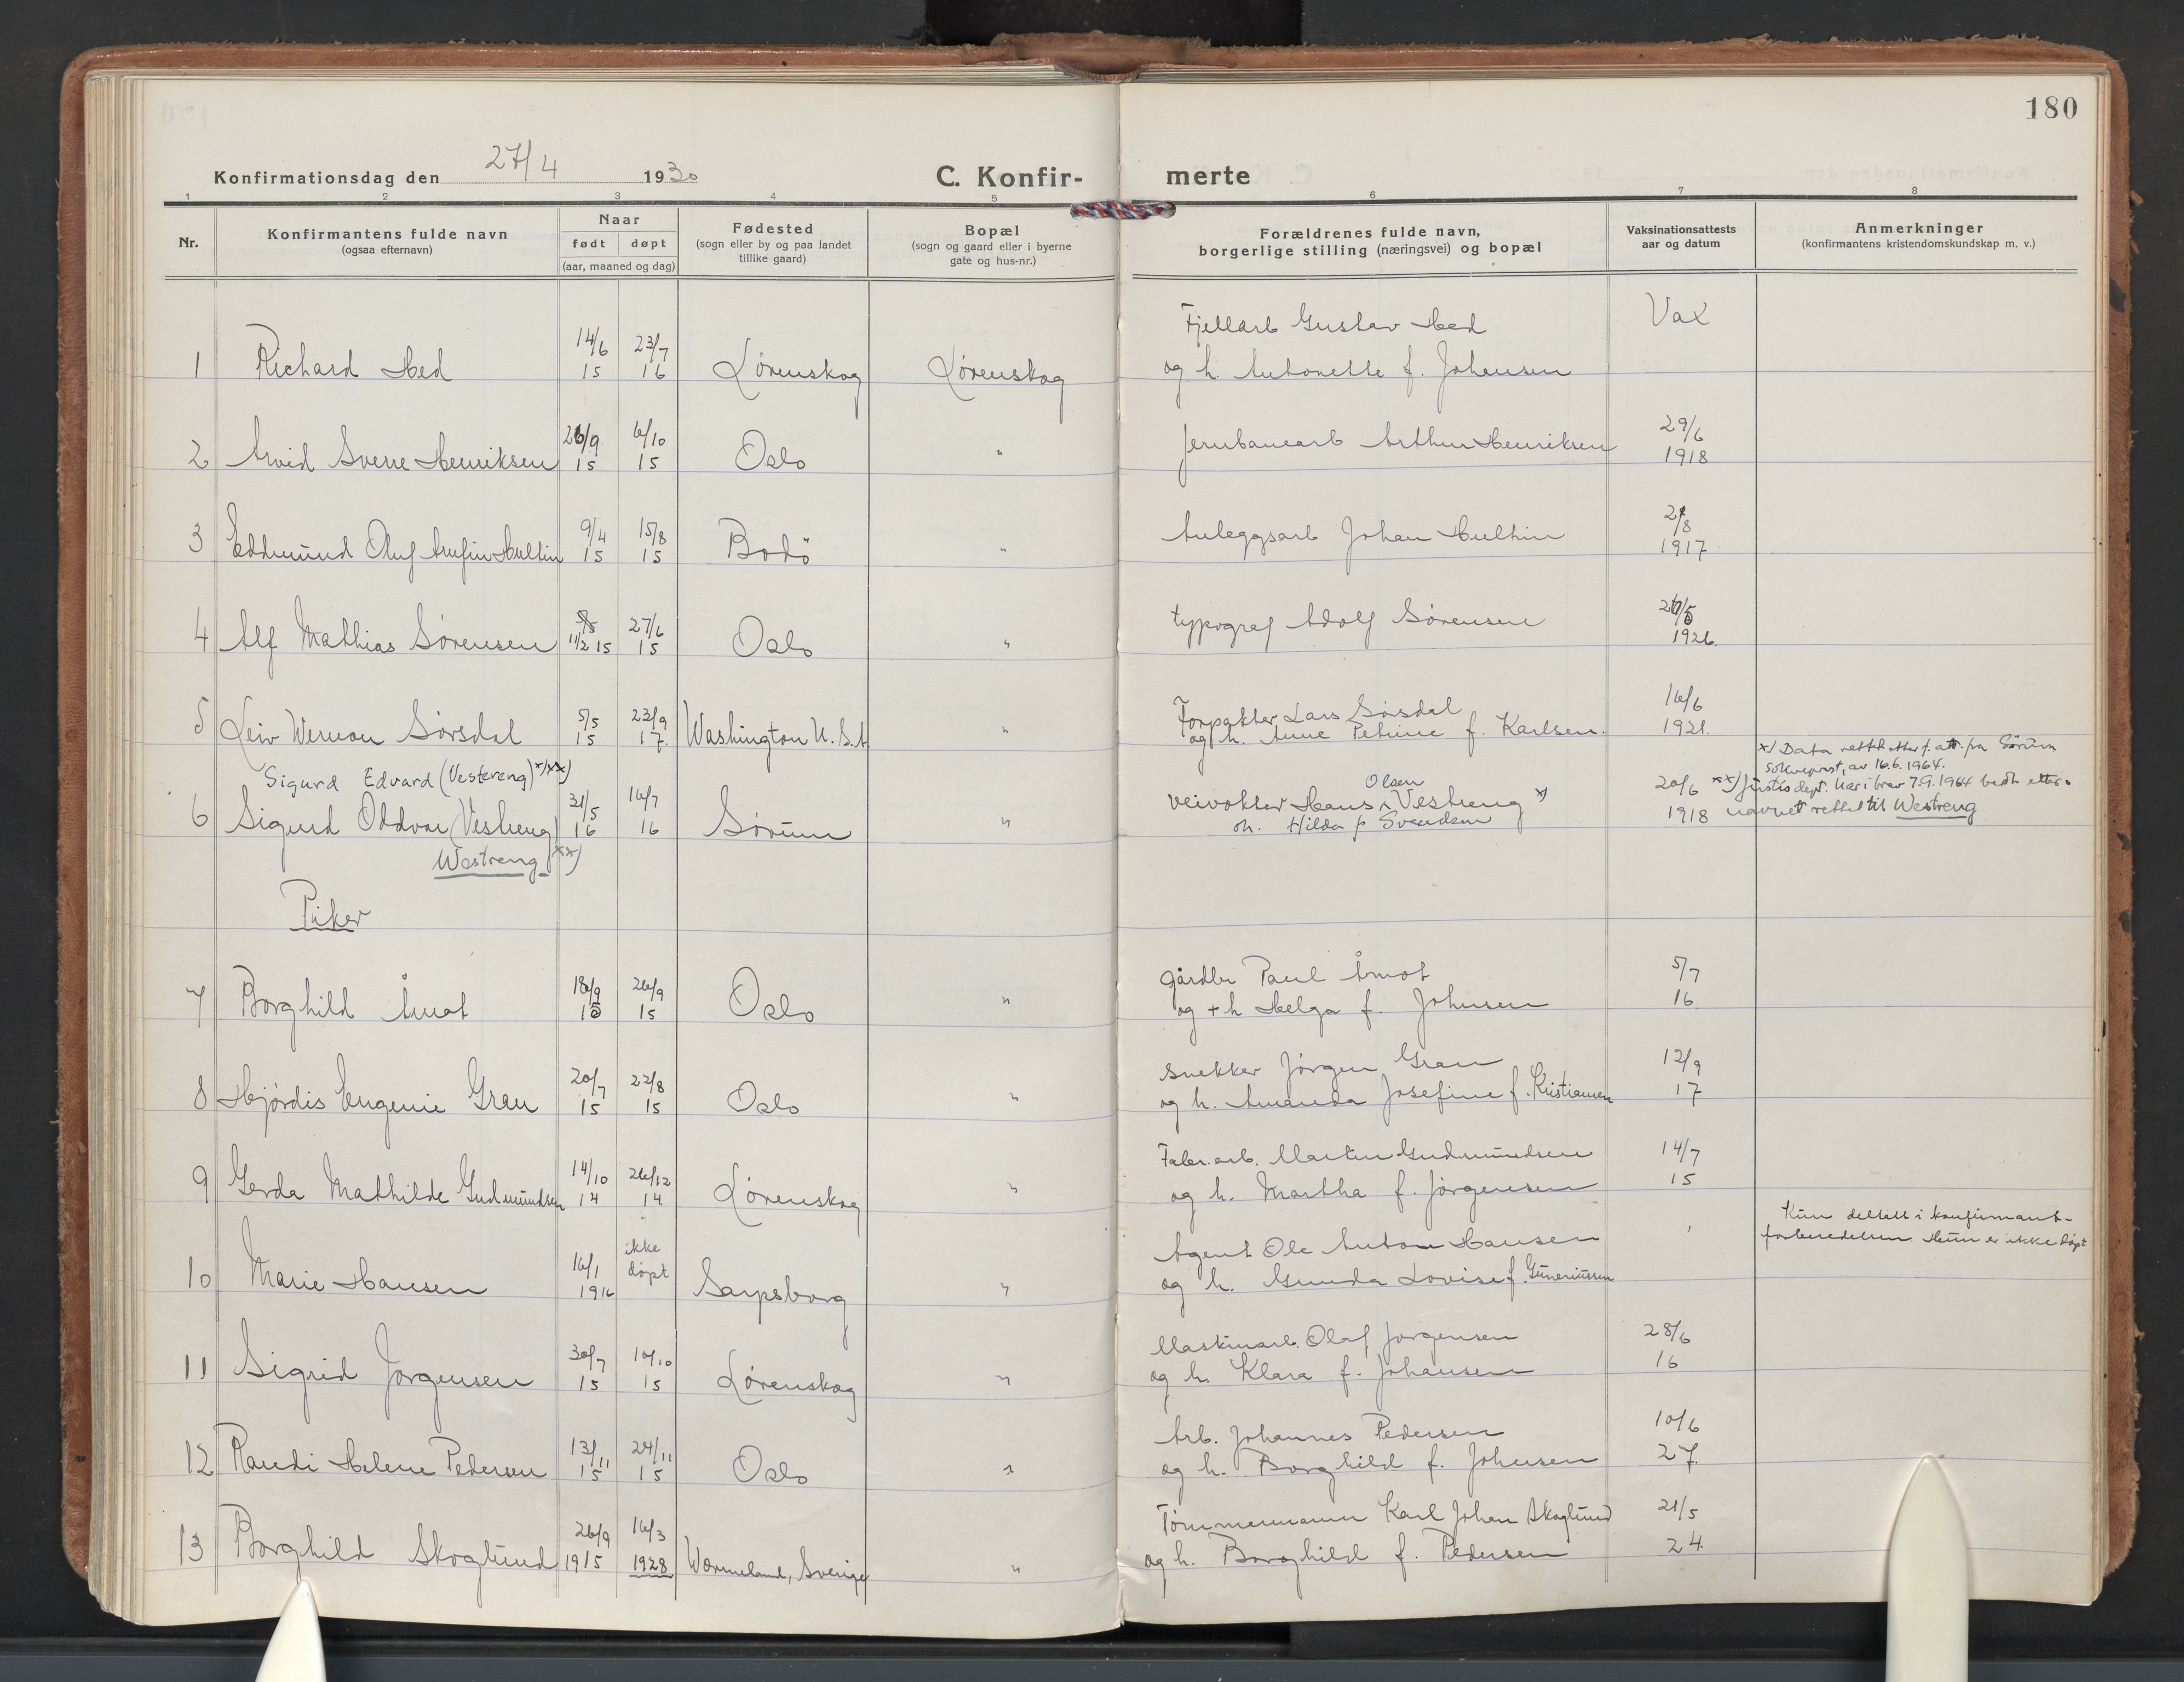 180
Konfirmationsdag den 27/4 1930
C. Konfir- merte
1 2 3 4 5 6 7 8
Nr.
Konfirmantens fulde navn
(ogsaa efternavn)
Naar
født døpt
(aar, maaned og dag)
Fødested
(sogn eller by og paa landet
tillike gaard)
Bopæl
(sogn og gaard eller i byerne
gate og hus-nr.)
Forældrenes fulde navn,
borgerlige stilling (næringsvei) og bopæl
Vaksinationsattests
aar og datum
Anmerkninger
(konfirmantens kristendomskundskap m. v.)
14/6 23/7 Fjellarb Gustav Hed Vax
1 Richard Hed 15 16 Lørenskog Lørenskog og h. Antonette f. Johansen
26/9 6/10 29/6
2 Arvid Sverre Henriksen 15 15 Oslo " Jernbanearb Arthur Henriksen 1918
9/4 15/8 /8
3 Eddmund Oluf Arnfin Hultin 15 15 Bodö " Anleggsarb Johan Hultin 1917
5/5 27/6
4 Alf Mathias Sörensen 11/2 15 15 Oslo " typograf Adolf Sörensen 1926.
5/5 23/9 Forpakter Lars Sörsdal 16/6
5 Leiv Wernon Sörsdal 15 17. Washington U.S.A. " og h. Anne Petrine f. Karlsen. 1921.
x) Data rettet etter f. att. fra Sörum
Sokneprest, av 16.6.1964.
Sigurd Edvard (Vestereng) x)xx)
31/5 16/7 Olsen 20/6 xx) Justisdept. har i brev 7.9.1964 bedt etter-
6 Sigurd Oddvar (Vestreng) 16 16 Sørum " veivokter Hans Vestreng x) 1918 navnet rettet til Westreng
oh. Hilda f Svendsen
Westreng xx)
Piker
18/9 26/9 gårdbr Paul Åmot 5/7
7 Borghild Åmot 15 15 Oslo " og + h Helga f. Johnsen 16
20/7 22/8 snekker Jörgen Gran 12/9
8 Hjördis Eugenie Gran 15 15 Oslo " og h. Amanda Josefine f. Kristiansen 17
14/10 26/12 Fabr. arb. Martin Gudmundsen 14/7
9 Gerda Mathilde Gudmundsen 14 14 Lörenskog " og h. Martha f. Jörgensen 15
16/1 ikke Agent Ole Anton Hansen Kun deltatt i konfirmant-
döpt forberedelsen Hun er ikke döpt
10 Marie Hansen 1916 Sarpsborg " og h. Gunda Lovise f. Guneriussen
30/7 10/10 Maskinarb. Olaf Jorgensen 28/6
11 Sigrid Jorgensen 15 15 Lörenskog " og h. Klara f. Johansen 16
13/11 24/11 Arb. Johannes Pedersen 10/6
12 Randi Helene Pedersen 15 15 Oslo " og h. Borghild f. Johnsen 27.
26/9 16/3 Tömmermann Karl Johan Skoglund 21/5
13 Borghild Skoglund 1915 1928 Wermeland, Sverige " og h. Borghild f. Pedersen 24.